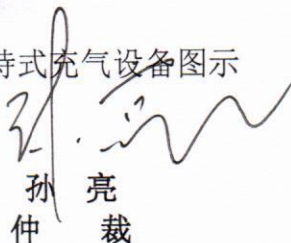 持式充气设备图示
孙 亮
仲 裁